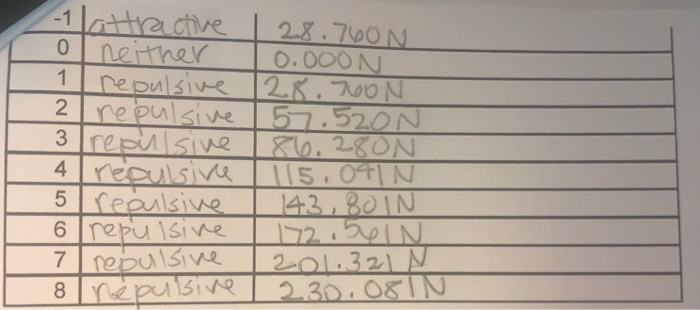 -1 attractive 28.760N
0 neither 0.000N
1 repulsive 28.760N
2 repulsive 57.520N
3 repulsive 86.280N
4 repulsive 115.041N
5 repulsive 143.801N
6 repulsive 172.561N
7 repulsive 201.321N
8 repulsive 230.081N